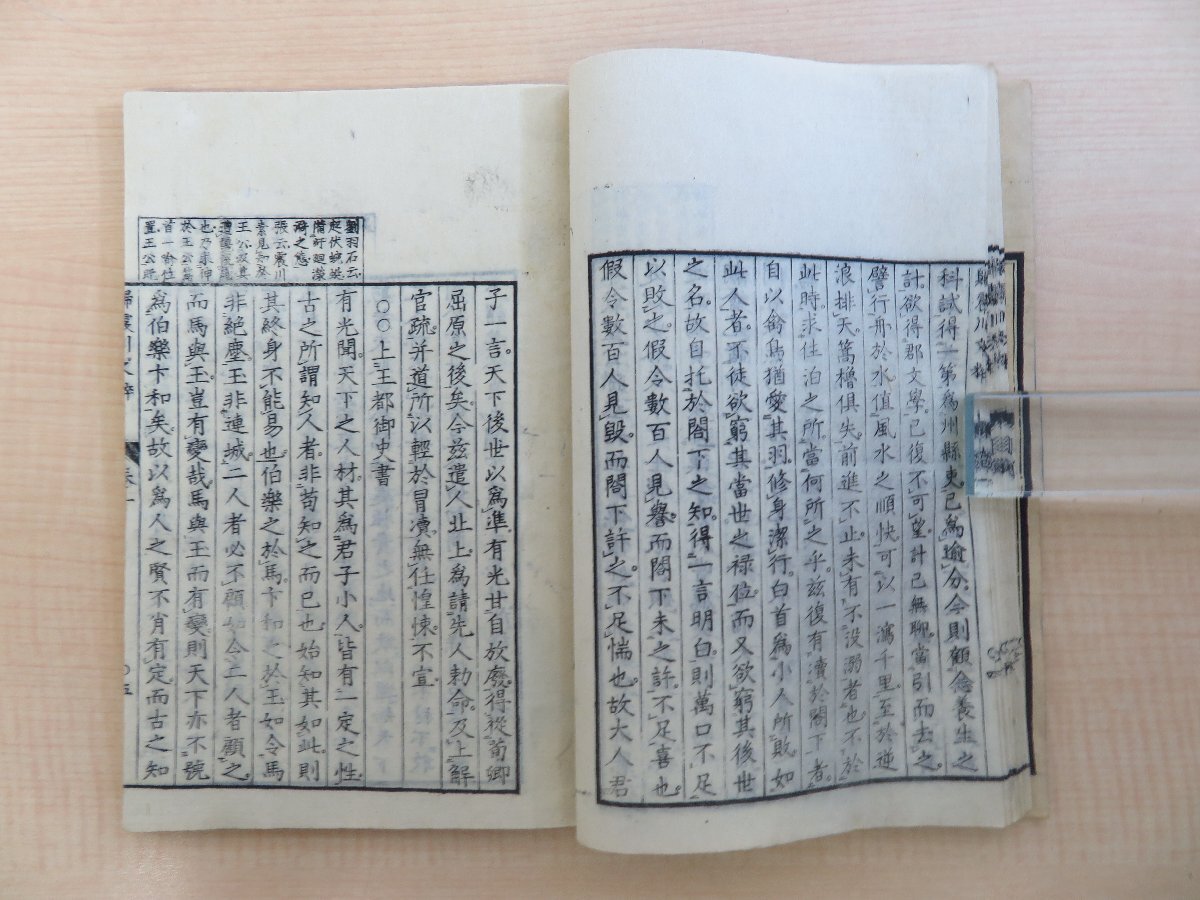 科試得一第爲州縣吏已爲逾分今則顧念養生之
計欲得郡文學已復不可望計已無聊當引而去之
譬行舟於水値風水之順快可以一瀉千里至於逆
浪排天篙櫓俱失前進不止未有不没溺者也不於
此時求住泊之所當何所之乎玆復有瀆於閤下者
自以禽鳥猶愛其羽修身潔行白首爲小人所敗如
此人者不徒欲窮其當世之禄位而又欲窮其後世
之名故自托於閤下之知得一言明白則萬口不足
以敗之假令數百人見譽而閤下未之許不足喜也
假令數百人見毀而閤下許之不足惴也故大人君
子一言天下後世以爲準有光甘自放廢得從荀卿
屈原之後矣今玆遣人北上爲請先人勅命及上解
官疏并道所以輕於冒瀆無任惶悚不宣
○○上王都御史書
有光聞天下之人材其爲君子小人皆有一定之性
古之所謂知人者非苟知之而已也始知其如此則
其終身不能易也伯樂之於馬卞和之於玉如令馬
非絶塵玉非連城二人者必不顧如令二人者顧之
而馬與玉豈有變哉馬與玉而有變則天下亦不號
爲伯樂卞和矣故以爲人之賢不肖有定而古之知
劉羽石云
起伏
張云震川
歸震川文粹
卷一
〇五